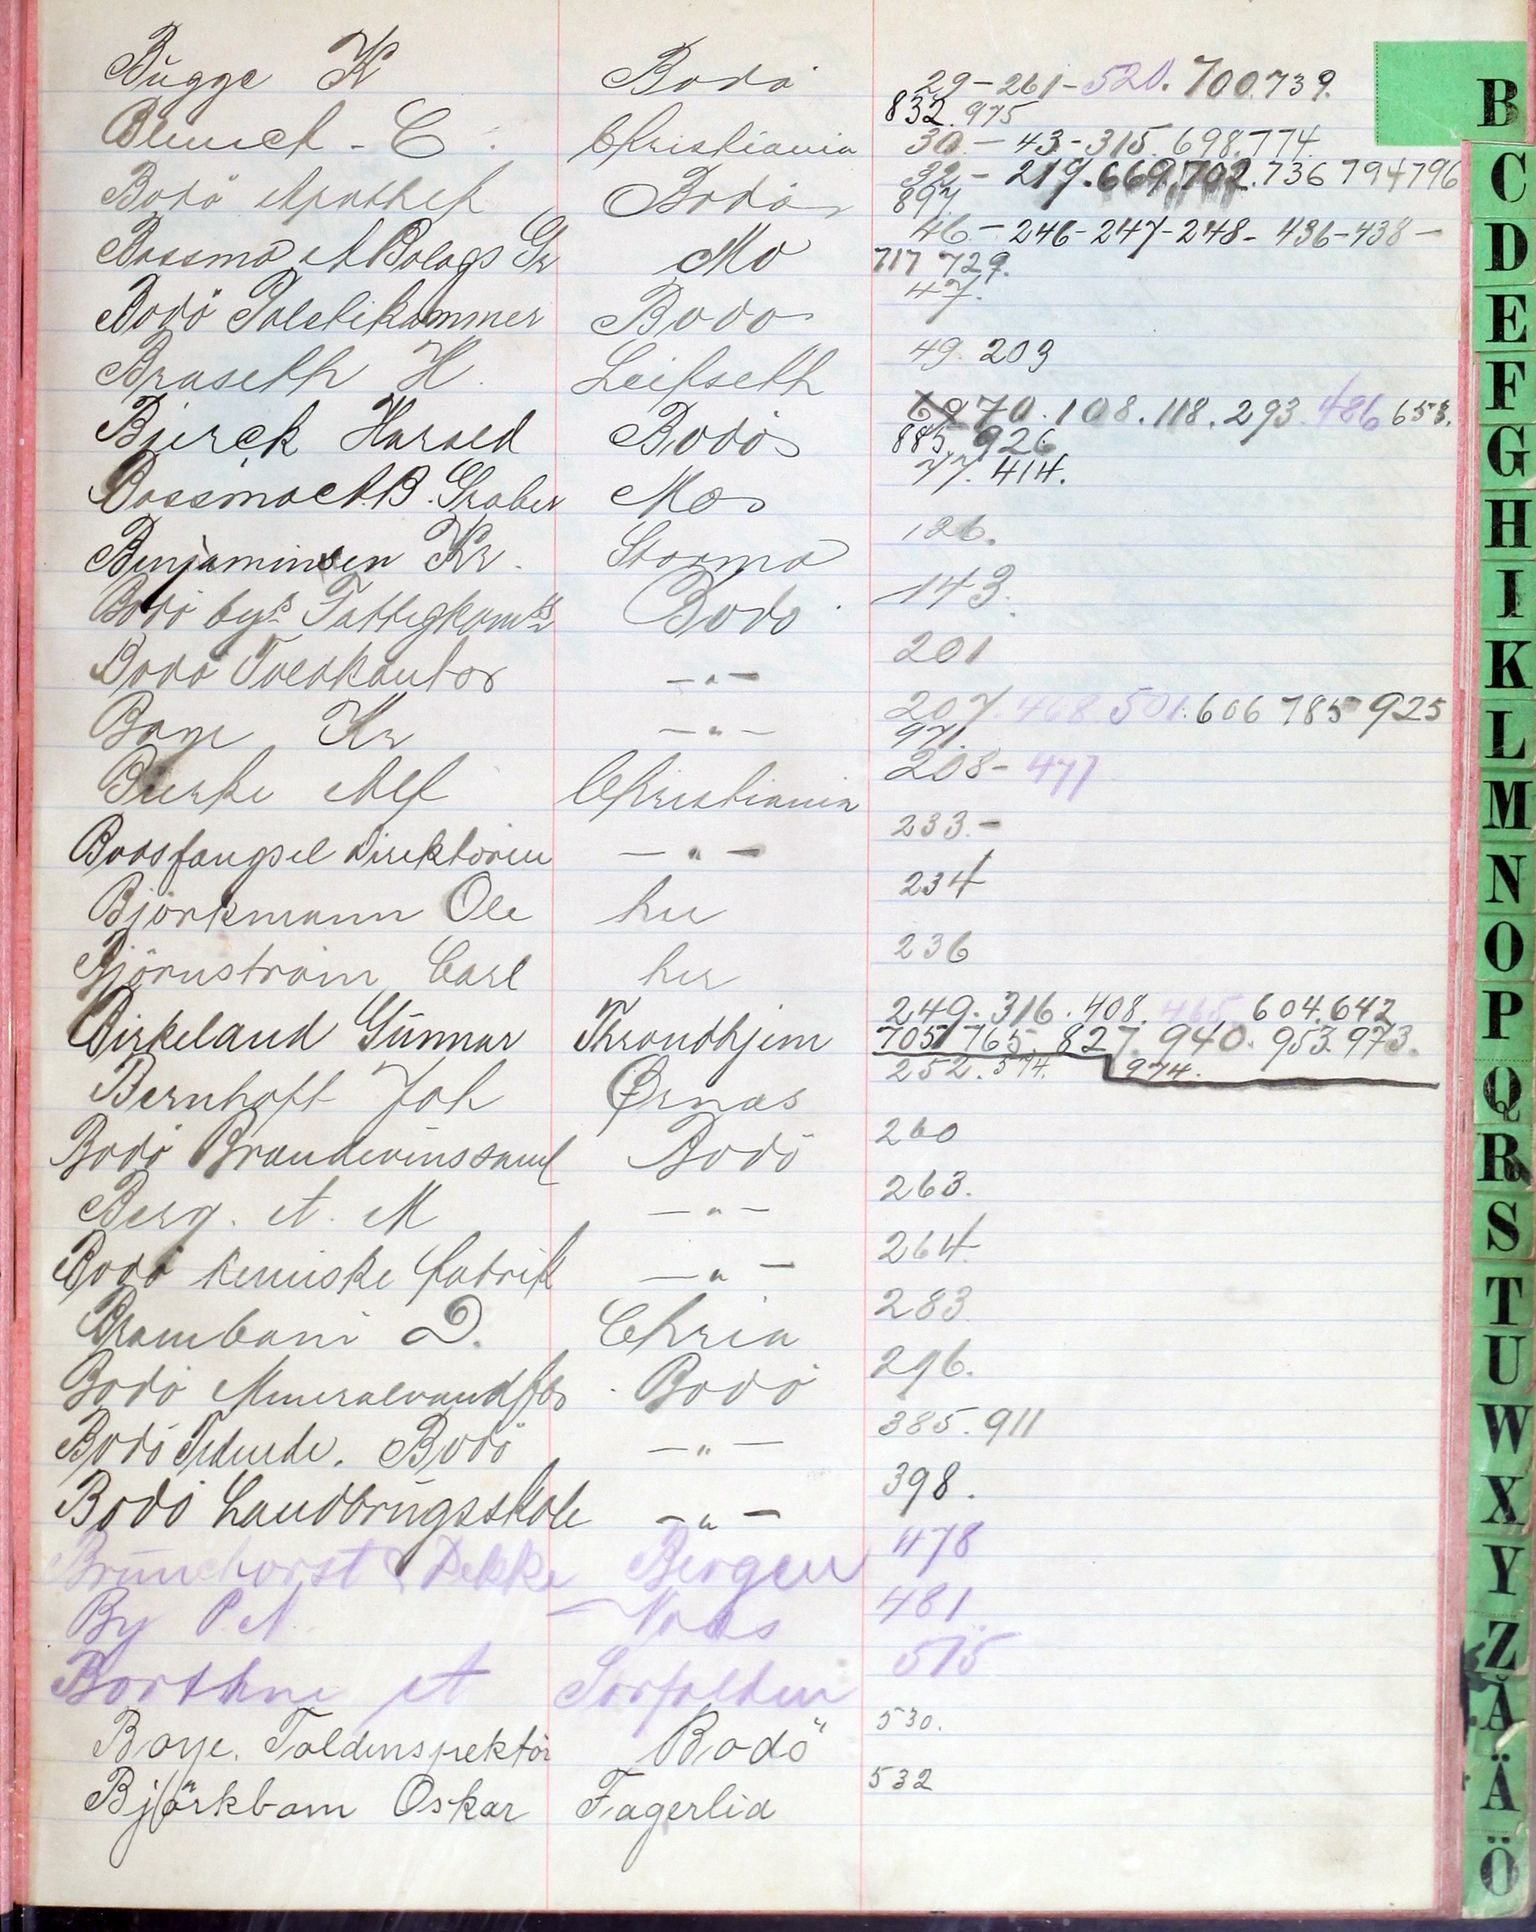 Bugge K Bodö 29-261-520.700.739.
832.975
Blunck - C. Christiania 30.-43-315.698.774.
Bodö Apothek Bodö 32-219.669.702.736 794 796
897
Bossmo A Bolags Gr Mo 46-246-247-248-436-438-
717 729.
Bodö Politikammer Bodö 47.
Braseth H. Leifseth 49. 203
Bjerck Harald Bodö 69 70.108.118.293.486 653.
885 926
Bossmo A.B. Gruber Mo 77. 414.
Benjaminsen Kr. Stormo 126.
Bodö bys Fattigkom Bodö 143.
Bodö Toldkontor -"- 201
Boye Kr -"- 207.468.501.606 785 925
971.
Bjerke Alf Christiania 208-477
Bodsfængsel Direktören -"- 233.-
Björkmann Ole her 234
Björnström Carl her 236
Birkeland Gunnar Throndhjem 249.316.408.465.604.642
705 765. 827.940.953.973.
974.
Bernhoft Joh Ørnæs 252.574.
Bodö Brændevinssaml Bodö 260
Berg. A. M -"- 263.
Bodö kemiske fabrik -"- 264.
Brambani D. Chria 283
Bodö Mineralvandfbr Bodö 296.
Bodö Tidende. Bodö -"- 385.911
Bodö Landbrugsskole -"- 398.
Brunchorst & Dekke Bergen 478
By P. N. Næs 481
Borthne A Sørfolden 515
Boye. Toldinspektör Bodö 530.
Björkbom Oskar Fagerlia 532
B
C
D
E
F
G
H
I
K
L
M
N
O
P
Q
R
S
T
U
W
X
Y
Z
Å
Ä
Ö